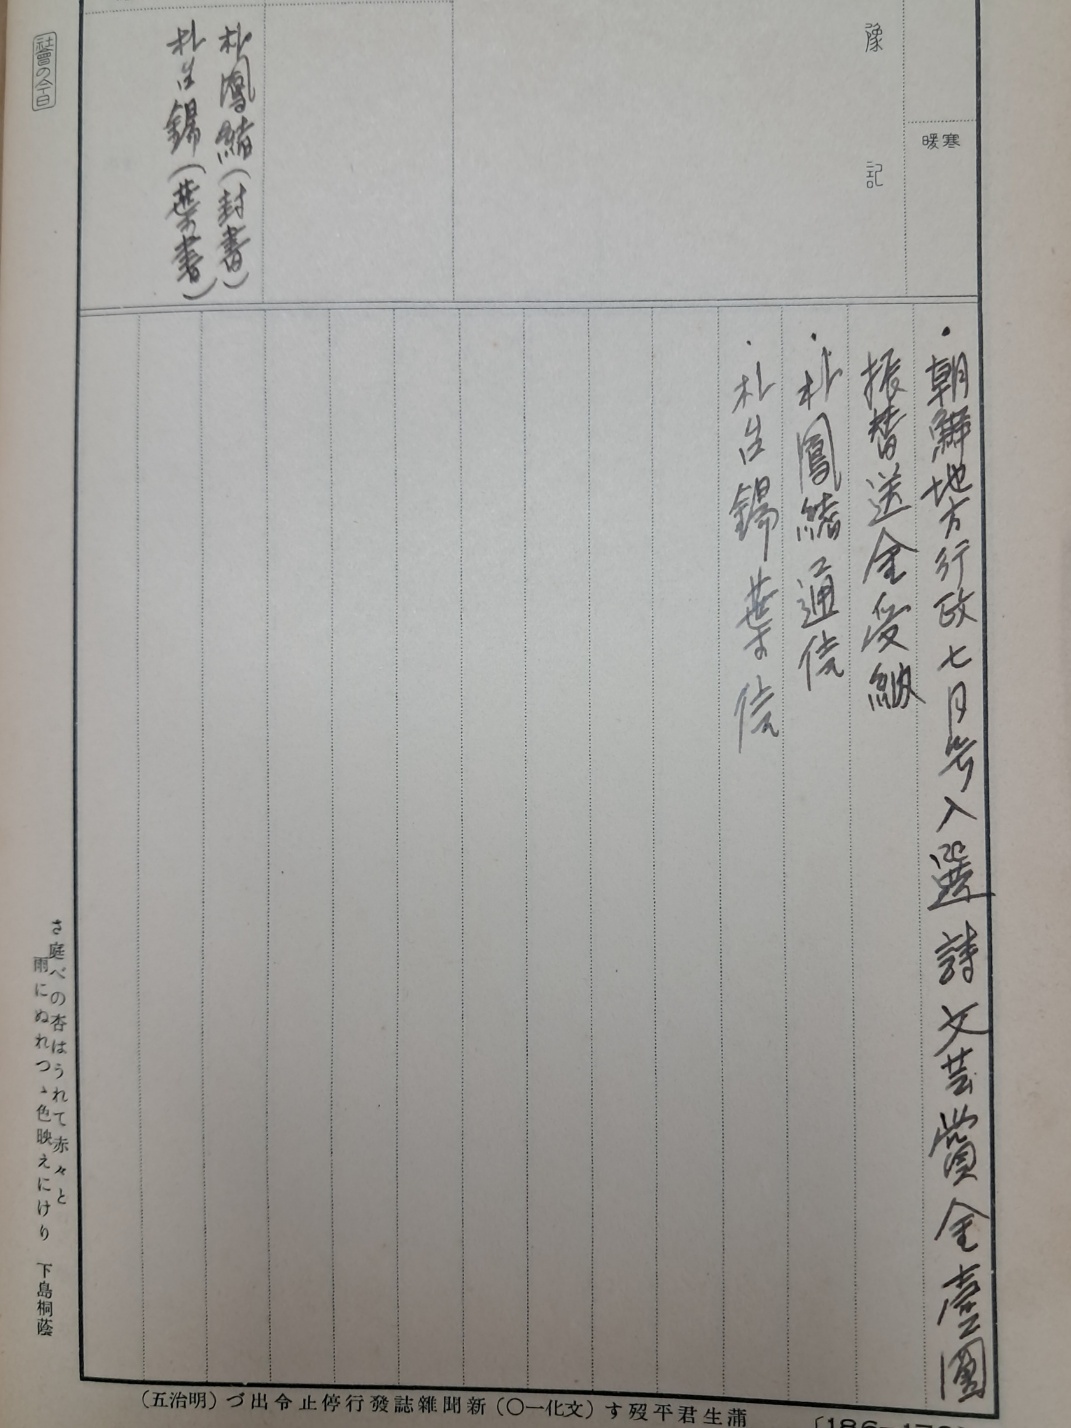 寒暖
豫記
・朝鮮地方行政七月号入選詩文芸賞金壹圓
振替送金受納
・朴鳳緒通信
・朴昌錫葉信
朴鳳緒(封書)
朴昌錫(葉書)
社會の今日
さ庭べの杏はうれて赤々と
雨にぬれつゝ色映えにけり 下島桐蔭
蒲生君平歿す(文化一〇)新聞雜誌發行停止令出づ(明治五)